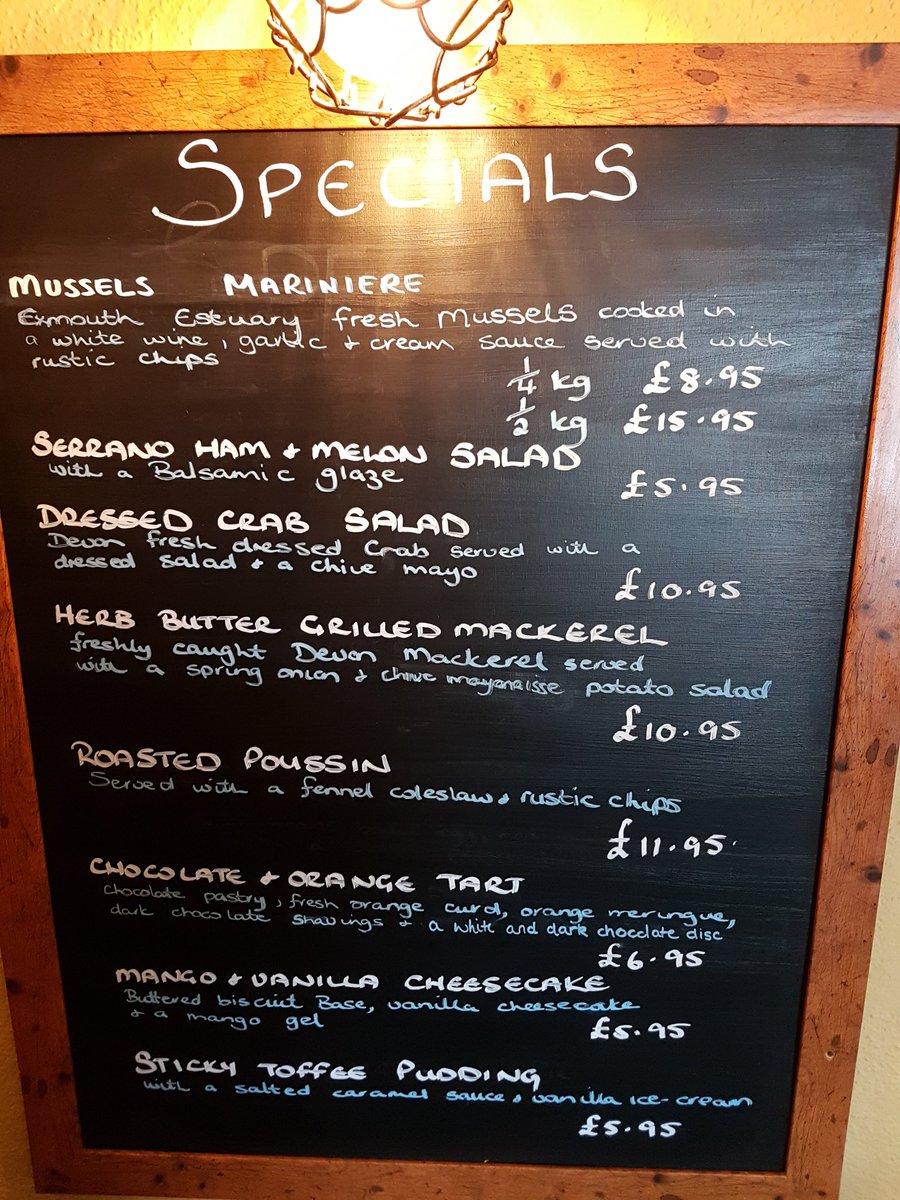 SPECIALS
MUSSELS MARINIERE
Exmouth Estuary fresh Mussels cooked in
a white wine, garlic & cream sauce served with
rustic chips
1/4 kg £8.95
1/2 kg £15.95
SERRANO HAM & MELON SALAD
with a Balsamic glaze
£5.95
DRESSED CRAB SALAD
Devon fresh dressed Crab served with a
dressed salad & a chive mayo
£10.95
HERB BUTTER GRILLED MACKEREL
freshly caught Devon Mackerel served
with a spring onion & chive mayonaisse potato salad
£10.95
ROASTED POUSSIN
Served with a fennel coleslaw & rustic chips
£11.95
CHOCOLATE & ORANGE TART
chocolate pastry, fresh orange curd, orange meringue,
dark chocolate shavings & a white and dark chocolate disc
£6.95
MANGO & VANILLA CHEESECAKE
Buttered biscuit Base, vanilla cheesecake
& a mango gel
£5.95
STICKY TOFFEE PUDDING
with a salted caramel sauce & vanilla ice-cream
£5.95